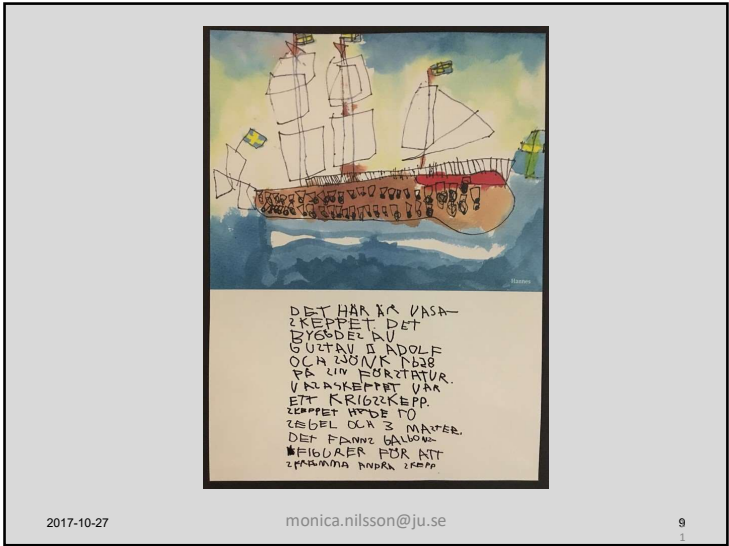 Hannes
DET HÄR ÄR VASA-
SKEPPET. DET
BYGGDES AV
GUSTAV II ADOLF
OCH SJÖNK 1628
PÅ SIN FÖRSTATUR.
VASASKEPPET VAR
ETT KRIGSSKEPP.
SKEPPET HADE 10
SEGEL OCH 3 MASTER.
DET FANNS GALJONS
FIGURER FÖR ATT
SKRÄMMA ANDRA SKEPP
2017-10-27
monica.nilsson@ju.se
9
1